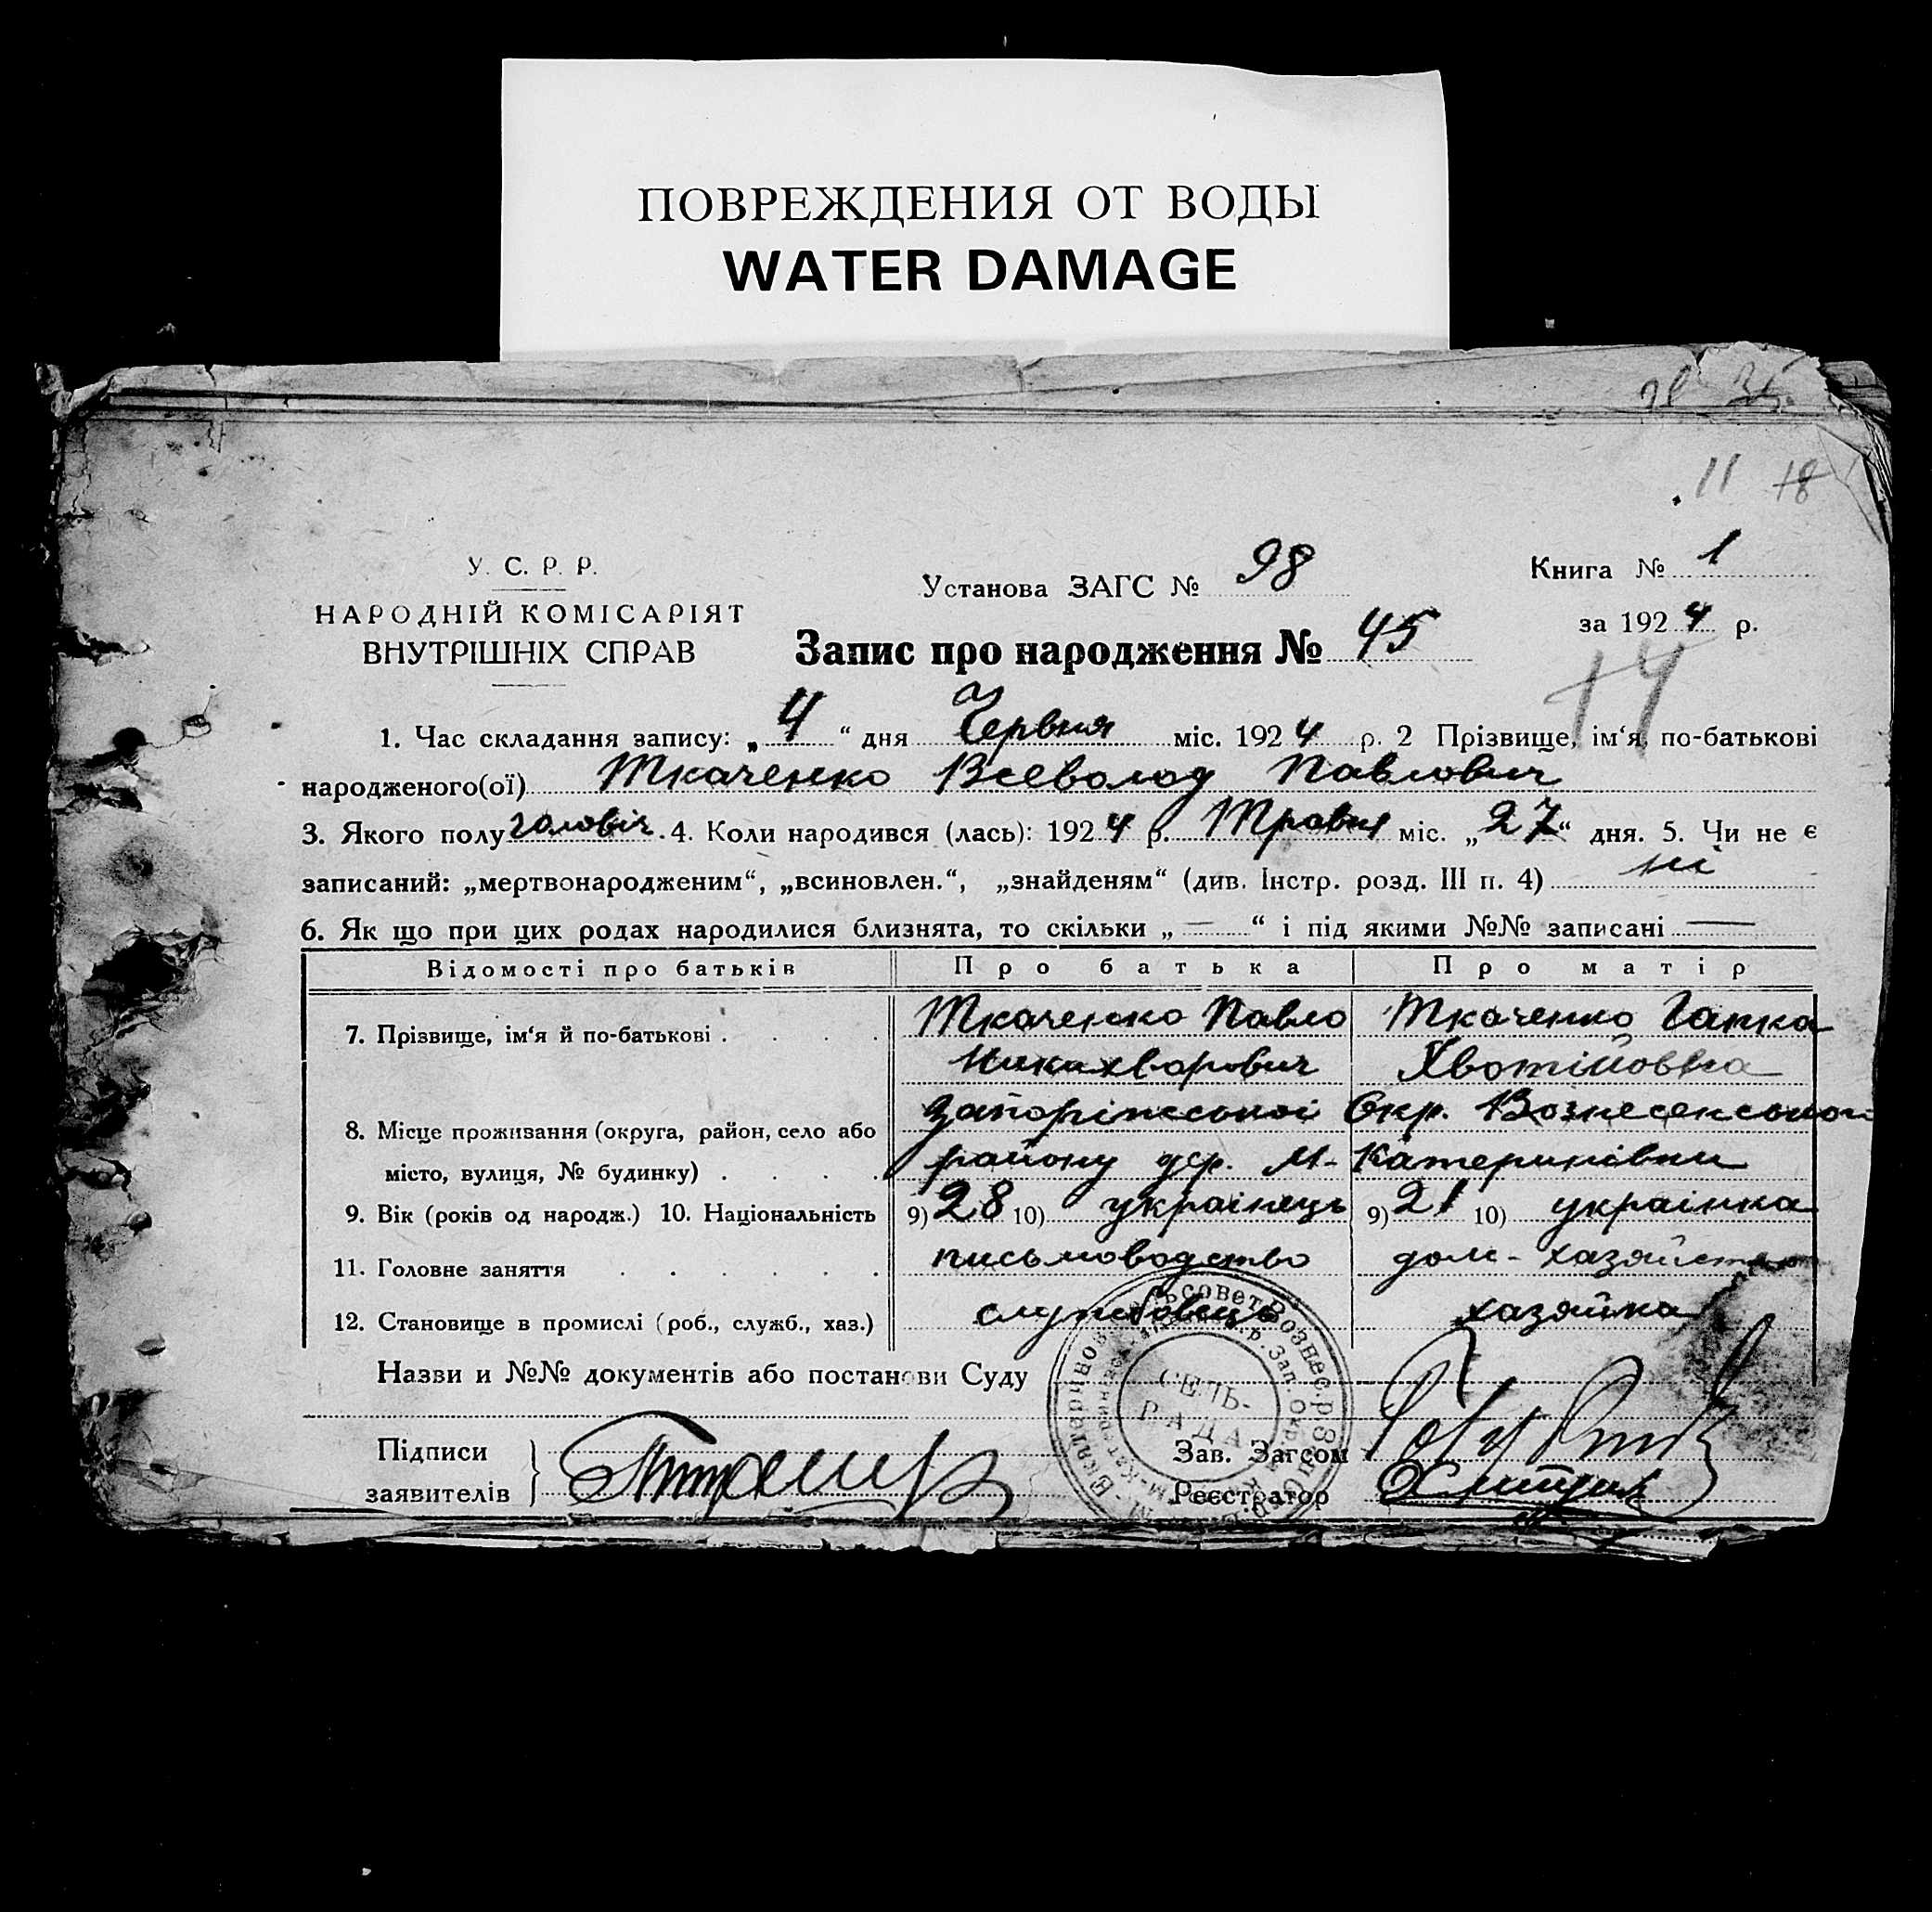 ПОВРЕЖДЕНИЯ ОТ ВОДЫ
WATER DAMAGE
11 18
У. С. Р. Р.
НАРОДНІЙ КОМІСАРІЯТ
ВНУТРІШНІХ СПРАВ
Установа ЗАГС № 98
Книга № 1
за 1924 р.
Запис про народження № 45
14
1. Час складання запису: „4“ дня Червня міс. 1924 р. 2 Прізвище, ім‘я, по-батькові
народженого(ої) Ткаченко Всеволод Павлович
3. Якого полу чоловіч. 4. Коли народився (лась): 1924 р. Травня міс. „27“ дня. 5. Чи не є
записаний: „мертвонародженим“, „всиновлен.“, „знайденям“ (див. Інстр. розд. III п. 4) ні
6. Як що при цих родах народилися близнята, то скільки „—“ і під якими №№ записані —
Відомості про батьків Про батька Про матір
7. Прізвище, ім‘я й по-батькові . . . . Ткаченко Павло Ткаченко Гапка
Никихварович Хвотійовна
8. Місце проживання (округа, район, село або Запоріжської Окр. Вознесенського
місто, вулиця, № будинку) . . . . району дер. М-Катеринівки
9. Вік (років од народж.) 10. Національність 9) 28 10) українець 9) 21 10) українка
11. Головне заняття . . . . . . письмоводство дом-хазяйство
12. Становище в промислі (роб., служб., хаз.) службовець хазяйка
Назви и №№ документів або постанови Суду
СЕЛЬ-
РАДА
Підписи
заявителів
Зав. Загсом
Реєстратор